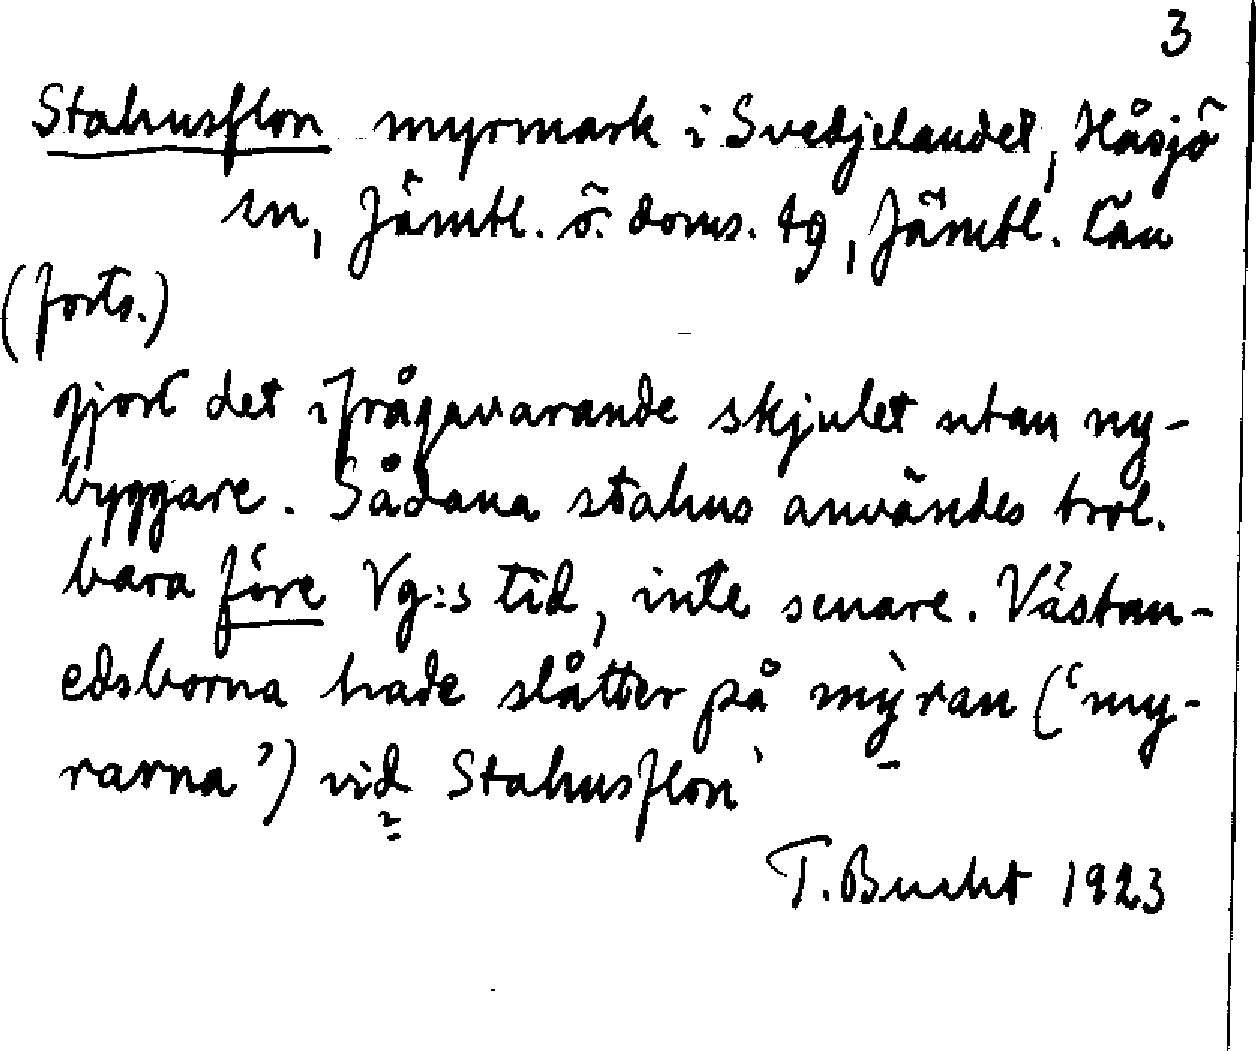 3
Stahusflon myrmark i Svedjelandet, Håsjö
sn, Jämtl. ö. doms. tg, Jämtl. län
(forts.)
gjort det ifrågavarande skjulet utan ny-
byggare. Sådana stahus användes trol.
bara före Vg:s tid, inte senare. Västan-
edsborna hade slåtter på mỳran ('my-
rarna') vid Stahusflon'
T. Bucht 1923